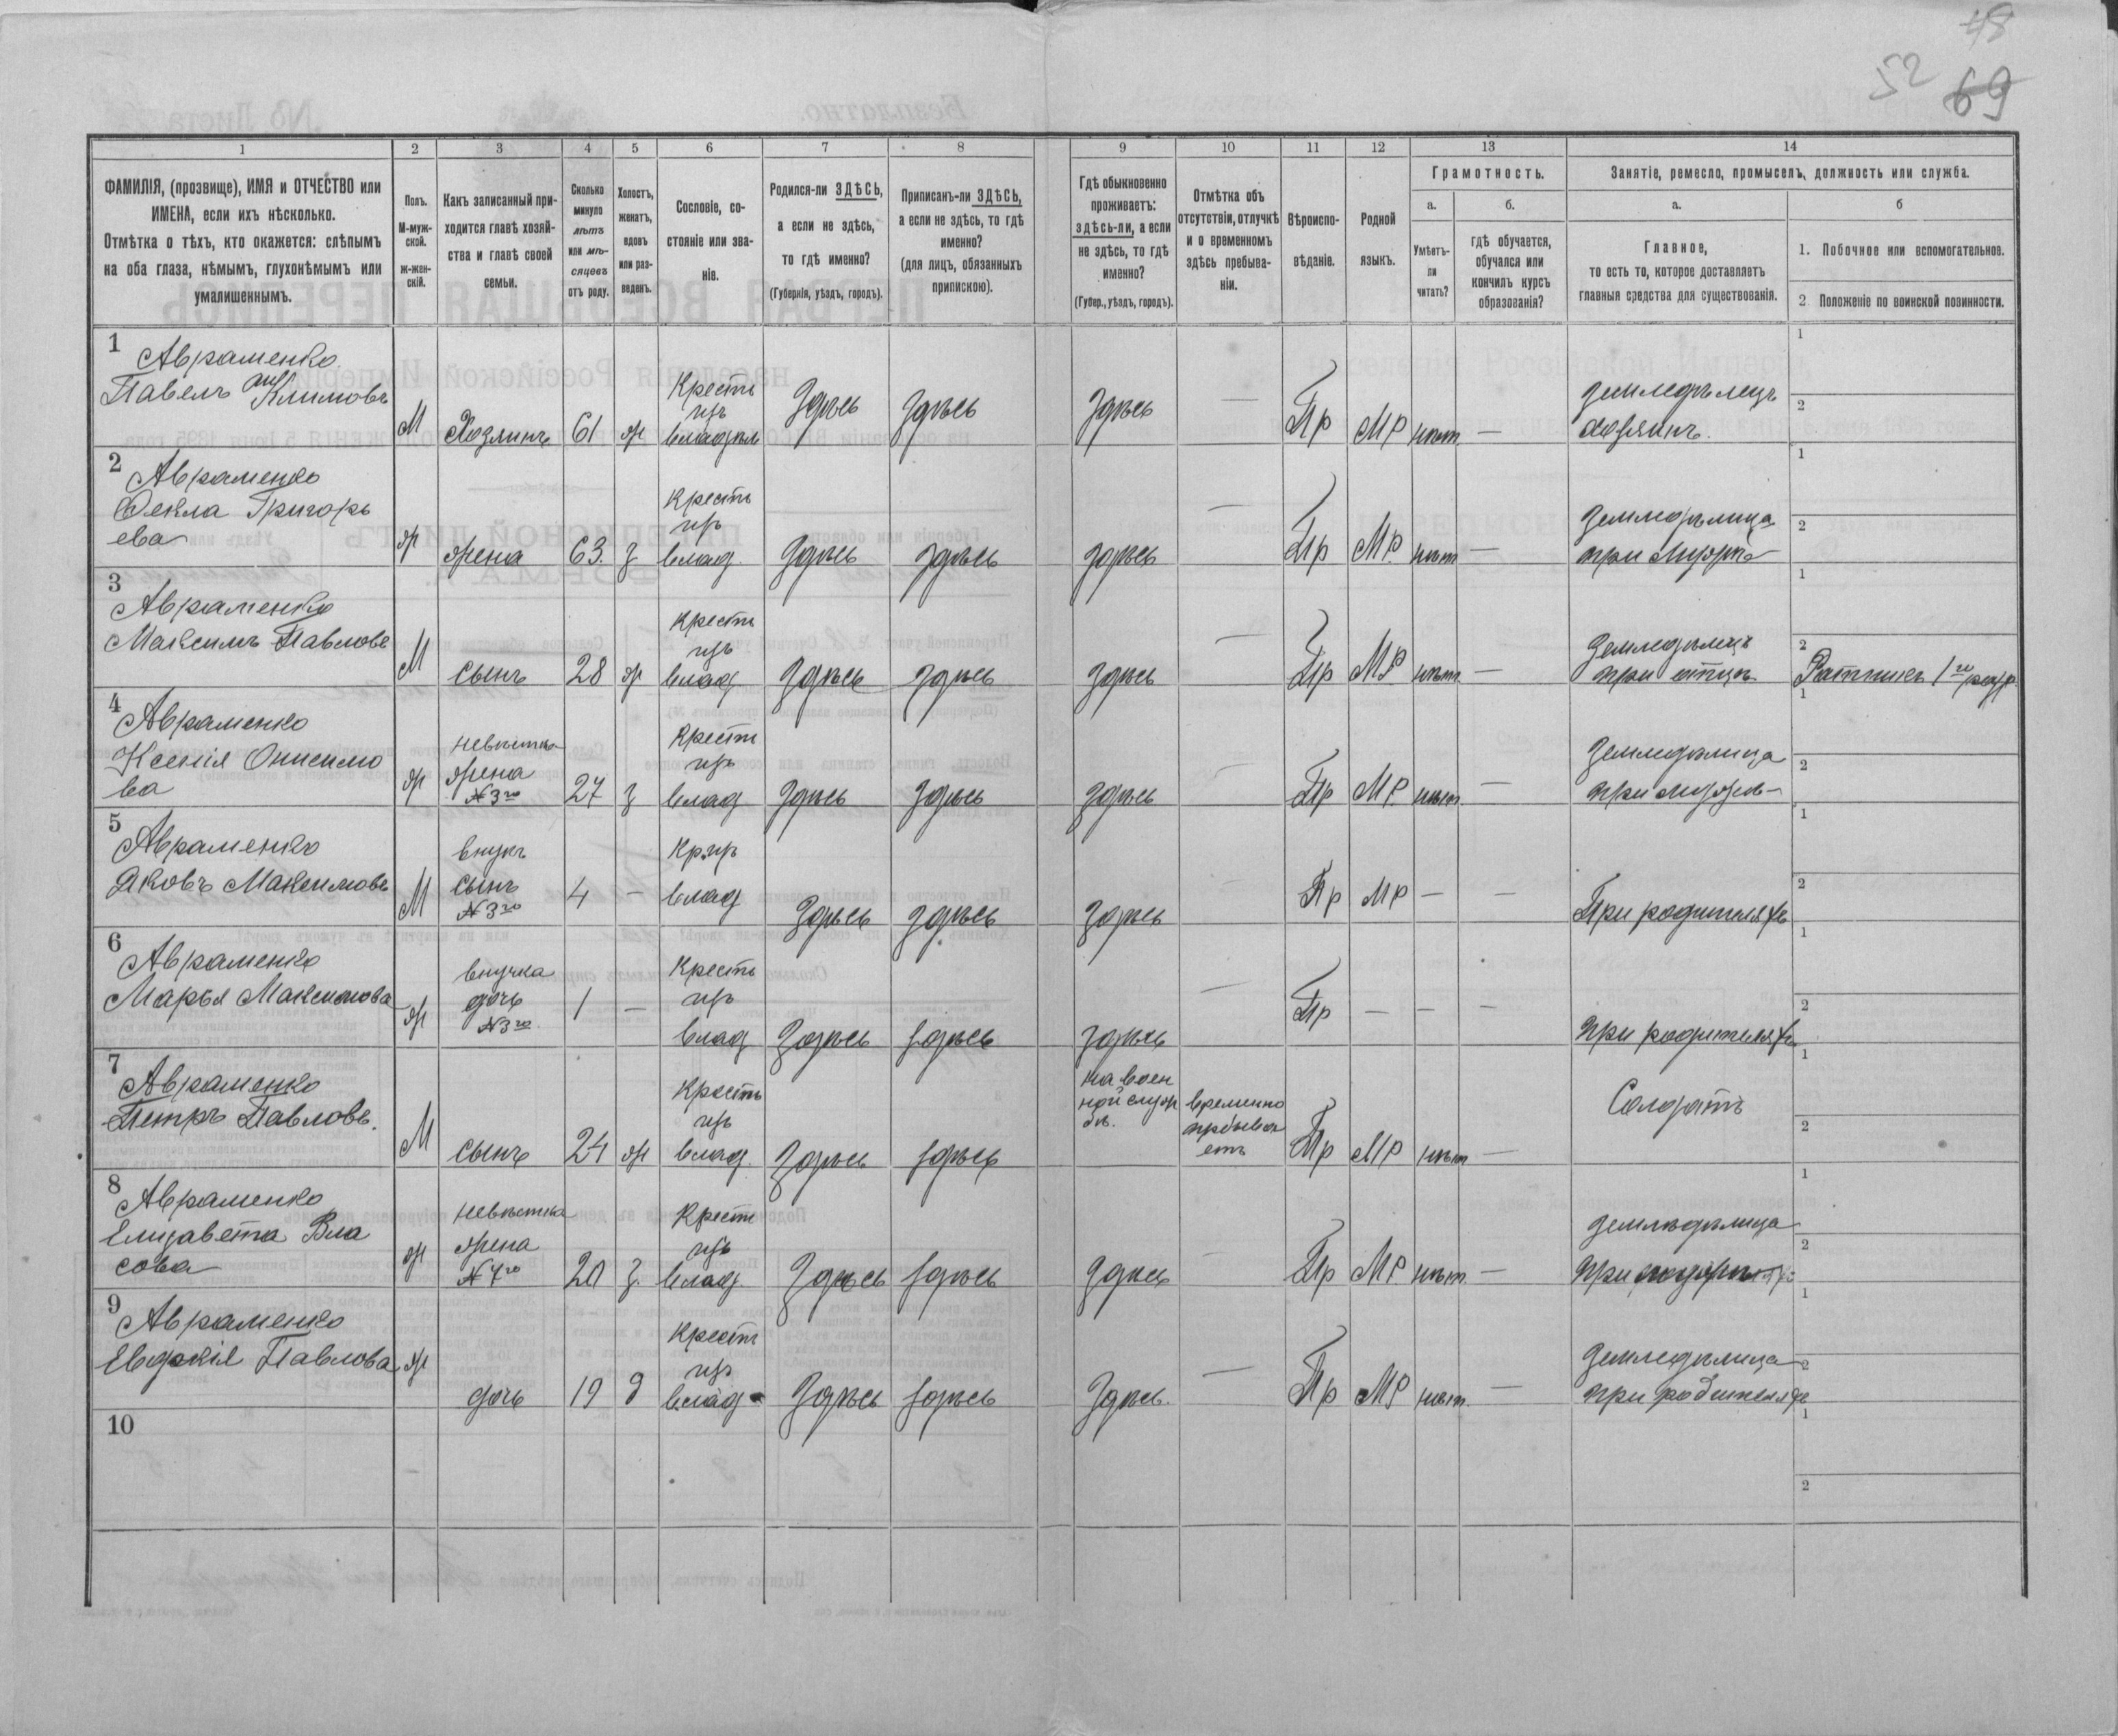 48
52 69
1 2 3 4 5 6 7 8 9 10 11 12 13 14
ФАМИЛІЯ, (прозвище), ИМЯ и ОТЧЕСТВО или
ИМЕНА, если ихъ нѣсколько.
Отмѣтка о тѣхъ, кто окажется: слѣпымъ
на оба глаза, нѣмымъ, глухонѣмымъ или
умалишеннымъ.
Полъ.
М-муж-
ской.
ж-жен-
скій.
Какъ записанный при-
ходится главѣ хозяй-
ства и главѣ своей
семьи.
Сколько
минуло
лѣтъ
или мѣ-
сяцевъ
отъ роду.
Холостъ,
женатъ,
вдовъ
или раз-
веденъ.
Сословіе, со-
стояніе или зва-
ніе.
Родился-ли ЗДѢСЬ,
а если не здѣсь,
то гдѣ именно?
(Губернія, уѣздъ, городъ).
Приписанъ-ли ЗДѢСЬ,
а если не здѣсь, то гдѣ
именно?
(для лицъ, обязанныхъ
припискою).
Гдѣ обыкновенно
проживаетъ:
здѣсь-ли, а если
не здѣсь, то гдѣ
именно?
(Губер., уѣздъ, городъ).
Отмѣтка объ
отсутствіи, отлучкѣ
и о временномъ
здѣсь пребыва-
ніи.
Вѣроиспо-
вѣданіе.
Родной
языкъ.
Грамотность.
а.
Умѣетъ-
ли
читать?
б.
гдѣ обучается,
обучался или
кончилъ курсъ
образованія?
Занятіе, ремесло, промыселъ, должность или служба.
а.
Главное,
то есть то, которое доставляетъ
главныя средства для существованія.
б
1. Побочное или вспомогательное.
2. Положеніе по воинской повинности.
1
Авраменко
Павелъ Климовъ
М Хозяинъ 61 ж
Кресть
изъ
владѣл
Здѣсь здѣсь здѣсь — Пр МР нѣт —
Земледѣлецъ
хозяинъ.
1
2
2
Авраменко
Фекла Григорь
ева
ж жена 63. з
Кресть
изъ
влад.
Здѣсь здѣсь здѣсь — Пр МР нѣт —
Земледѣлица
при мужѣ
1
2
3
Авраменко
Максимъ Павловъ
М сынъ 28 ж
Кресть
изъ
влад
Здѣсь здѣсь здѣсь — Пр МР нѣт —
Земледѣлецъ
при отцѣ
1
2
Ратникъ 1го разр.
4
Авраменко
Ксенія Онисимо
ва
ж
невѣстка
жена
№ 3го
27 з
Крест
изъ
влад
Здѣсь здѣсь здѣсь — Пр МР нѣт —
Земледѣлица
при мужѣ
1
2
5
Авраменко
Яковъ Максимовъ
М
внукъ
сынъ
№ 3го
4 —
Кр. изъ
влад
Здѣсь здѣсь здѣсь — Пр МР — —
При родителяхъ
1
2
6
Авраменко
Марья Максимова
ж
внучка
дочь
№ 3го
1 —
Кресть
изъ
влад
Здѣсь здѣсь здѣсь — Пр — — —
при родителяхъ
1
2
7
Авраменко
Петръ Павловъ.
М сынъ 24 ж
Кресть
изъ
влад.
Здѣсь здѣсь
на воен
ной служ
бѣ.
временно
пребыва
етъ
Пр МР нѣт —
Солдатъ
1
2
8
Авраменко
Елизавета Вла
сова
ж
невѣстка
жена
№ 7го
20 з.
Крест
изъ
влад.
Здѣсь здѣсь здѣсь — Пр МР нѣт —
Земледѣлица
при
1
2
9
Авраменко
Евдокія Павлова
ж дочь 19 д
Крест
изъ
влад
Здѣсь здѣсь здѣсь. — Пр МР нѣт. —
Земледѣлица
при родителяхъ
1
2
10
1
2